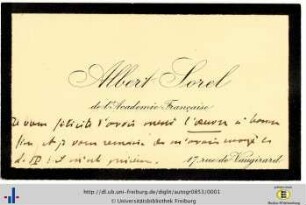 Albert Sorel
de l'Académie Française
Je vous félicite d'avoir mené l'œuvre à bonne
fin et je vous remercie de m'avoir
17 rue de Vaugirard
http://dl.ub.uni-freiburg.de/diglit/autogr0853/0001
© Universitätsbibliothek Freiburg